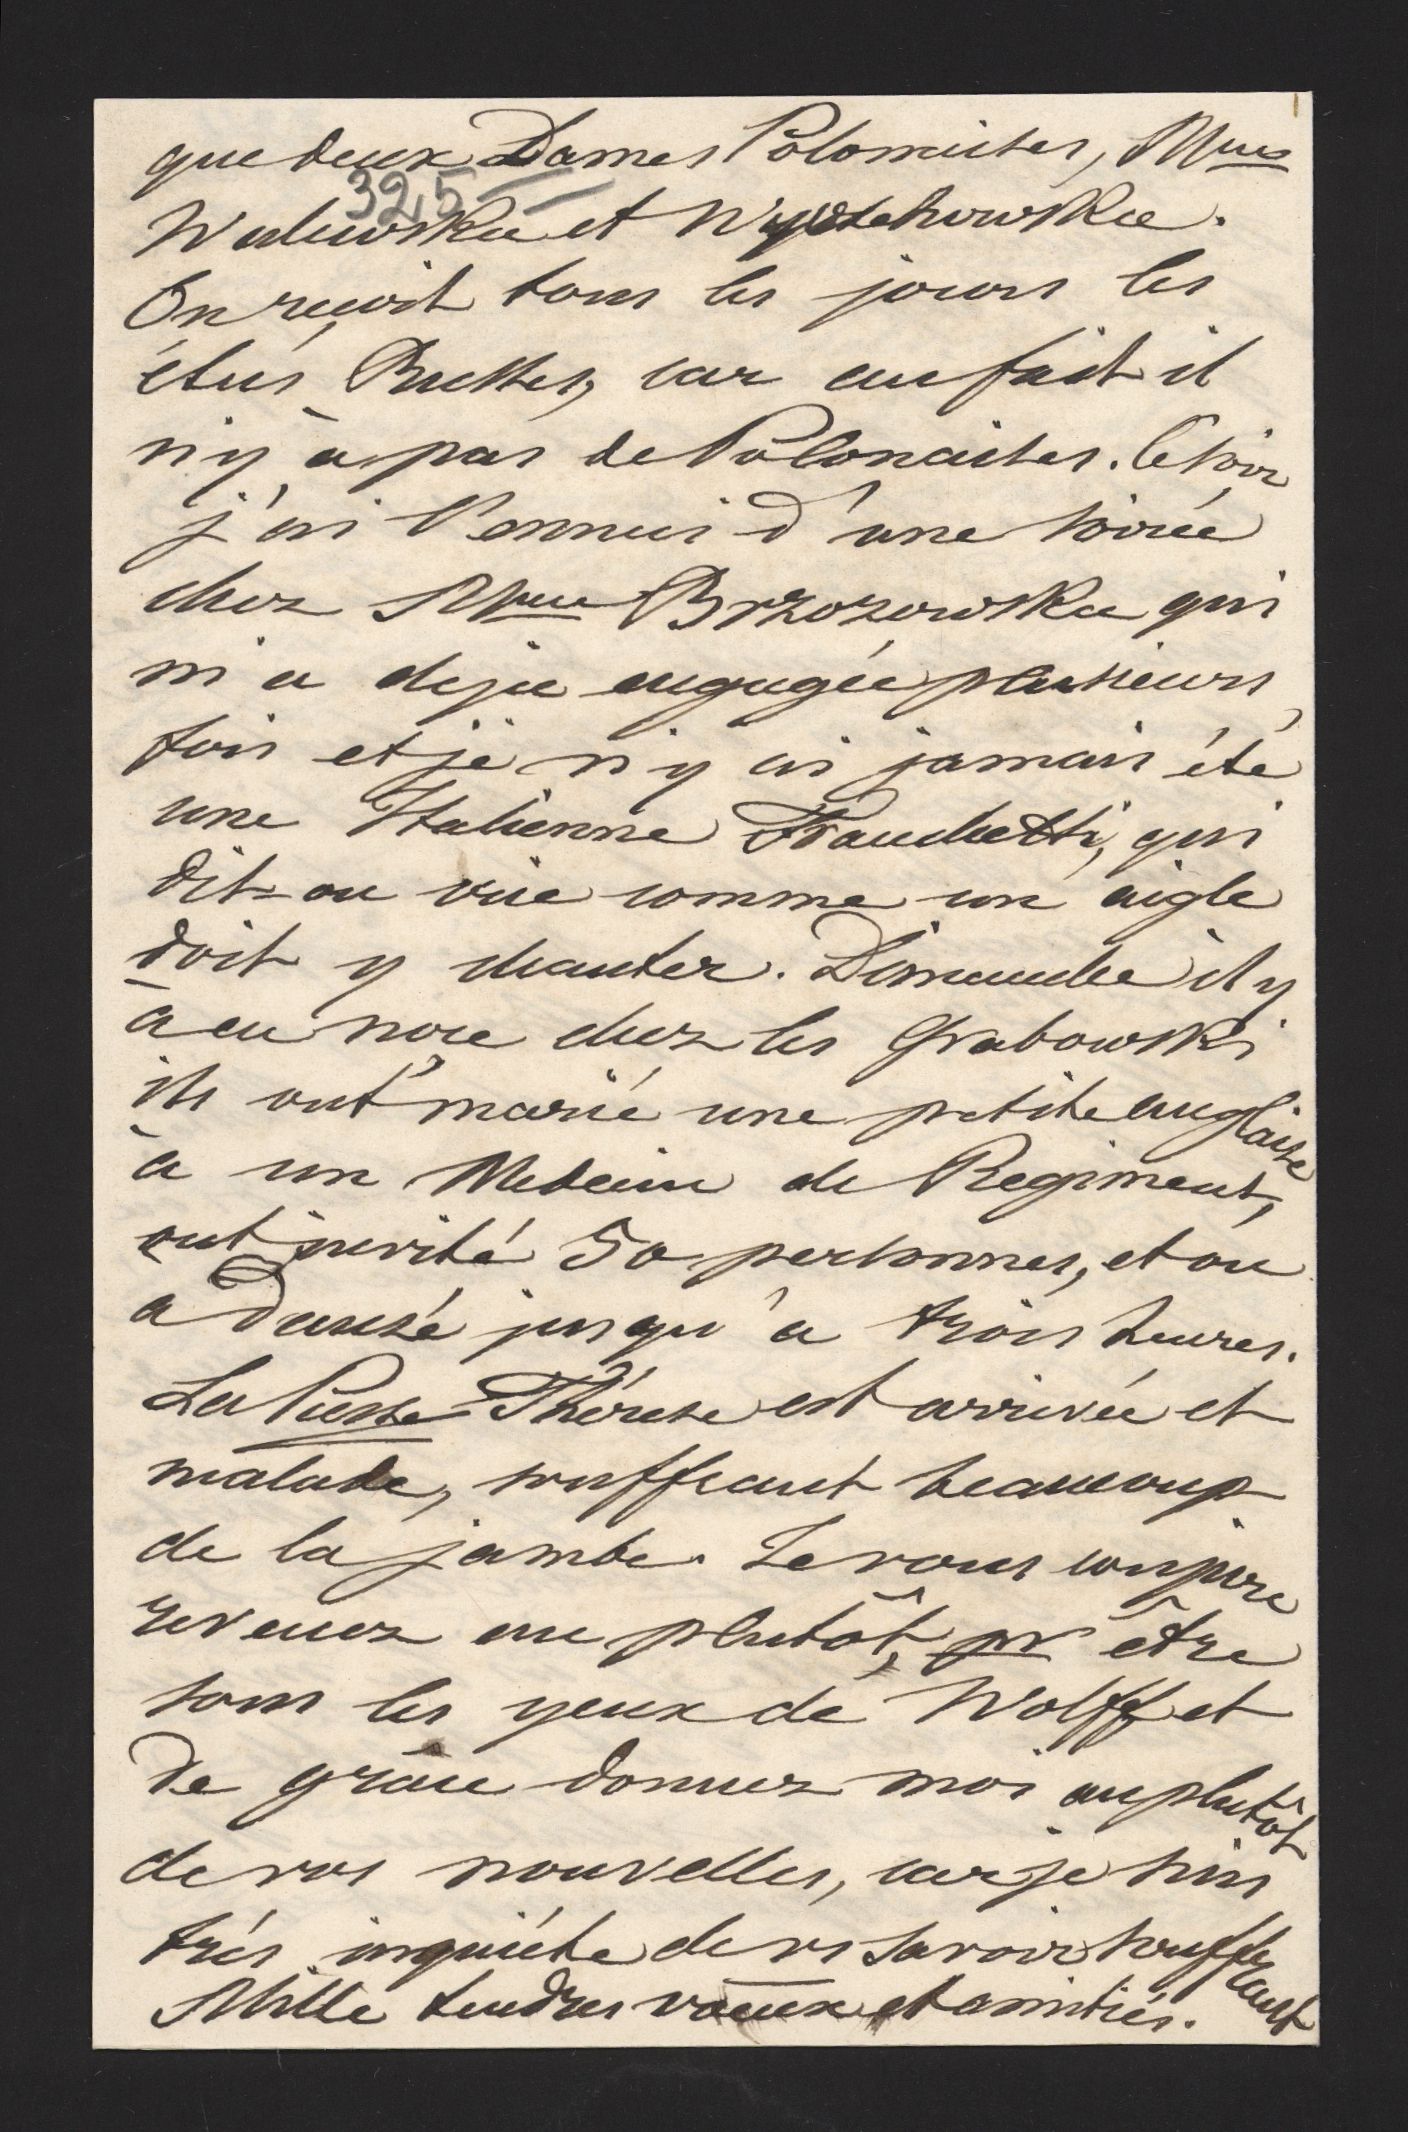 que deux Dames Polonaises, Mmes
325
Walewska et Wyszchowska.
On reçoit tous les jours les
élus Russes, car au fait il
n'y à pas de Polonaises. Ce soir
j'ai l'ennui d'une soirée
chez Mme Brzozowska qui
m'a deja engagée plusieurs
fois et je n'y ai jamais été
une Italienne Franchetti, qui
dit-on crie comme un aigle
doit y chanter. Dimanche il y
a eu noce chez les Grabowski
ils ont marié une petite anglaise
à un Medecin de Regiment,
ont invité 50 personnes, et on
a dansé jusqu'a trois heures.
La Psse Thérese est arrivée et
malade, souffrant beaucoup
de la jambe. Je vous conjure
revenez au plutôt, pr être
sous les yeux de Wolff et
de grâce donnez moi au plutôt
de vos nouvelles, car je suis
très inquiéte de vs savoir souffrant
Mille tendres voeux et amitiés.